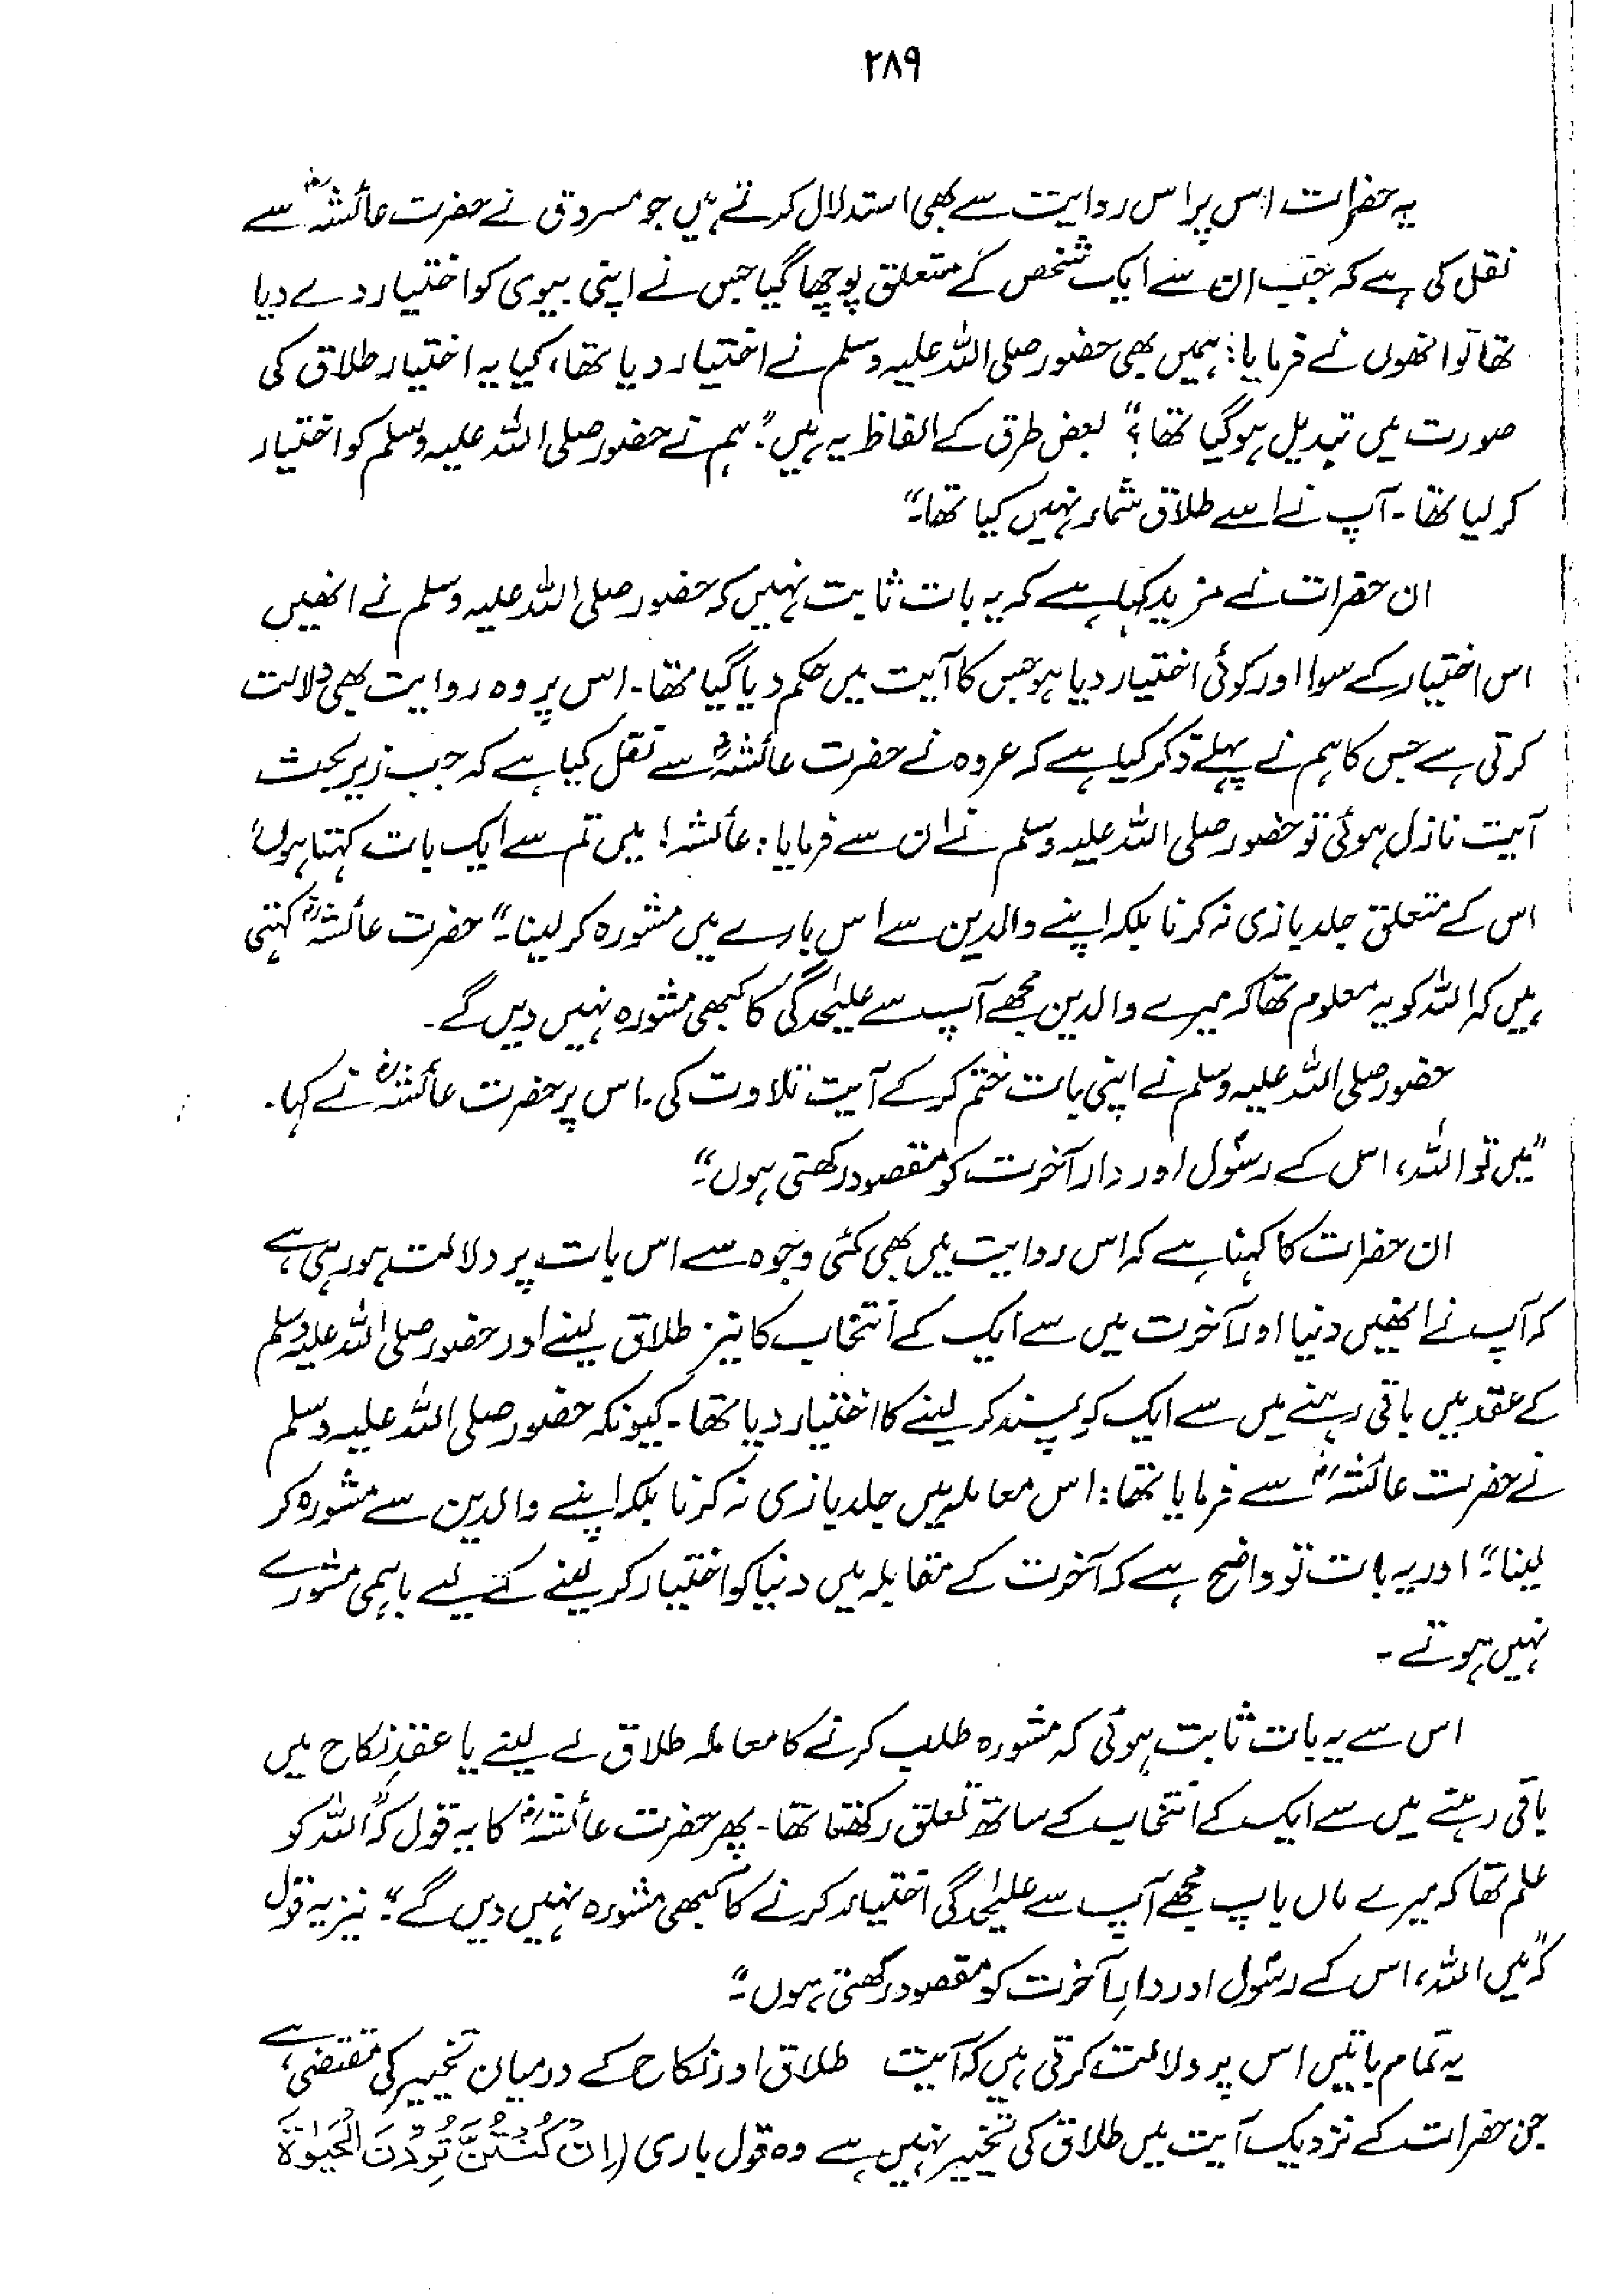 ۲۸۹
یہ حضرات اس پر اس روایت سے بھی استدلال کرتے ہیں جو مسروق نے حضرت عائشہؓ سے
نقل کی ہے کہ جب ان سے ایک شخص کے متعلق پوچھا گیا جس نے اپنی بیوی کو اختیار دے دیا
تھا تو انھوں نے فرمایا: ہمیں بھی حضور صلی اللہ علیہ وسلم نے اختیار دیا تھا، کیا یہ اختیار طلاق کی
صورت میں تبدیل ہو گیا تھا؟" بعض طرق کے الفاظ یہ ہیں:" ہم نے حضور صلی اللہ علیہ وسلم کو اختیار
کر لیا تھا۔ آپ نے اسے طلاق شمار نہیں کیا تھا۔"
ان حضرات نے مزید کہا ہے کہ یہ بات ثابت نہیں کہ حضور صلی اللہ علیہ وسلم نے انھیں
اس اختیار کے سوا اور کوئی اختیار دیا ہو جس کا آیت میں حکم دیا گیا تھا۔ اس پر وہ روایت بھی دلالت
کرتی ہے جس کا ہم نے پہلے ذکر کیا ہے کہ عروہ نے حضرت عائشہؓ سے نقل کیا ہے کہ جب زیر بحث
آیت نازل ہوئی تو حضور صلی اللہ علیہ وسلم نے ان سے فرمایا: عائشہ! میں تم سے ایک بات کہتا ہوں،
اس کے متعلق جلد بازی نہ کرنا بلکہ اپنے والدین سے اس بارے میں مشورہ کر لینا۔" حضرت عائشہؓ کہتی
ہیں کہ اللہ کو یہ معلوم تھا کہ میرے والدین مجھے آپ سے علیٰحدگی کا کبھی مشورہ نہیں دیں گے۔
حضور صلی اللہ علیہ وسلم نے اپنی بات ختم کر کے آیت تلاوت کی۔ اس پر حضرت عائشہؓ نے کہا۔
"میں تو اللہ، اس کے رسول اور دار آخرت کو مقصود رکھتی ہوں۔"
ان حضرات کا کہنا ہے کہ اس روایت میں بھی کئی وجوہ سے اس بات پر دلالت ہو رہی ہے
کہ آپ نے انھیں دنیا اور آخرت میں سے ایک کے انتخاب کا نیز طلاق لینے اور حضور صلی اللہ علیہ وسلم
کے عقد میں باقی رہنے میں سے ایک کو پسند کر لینے کا اختیار دیا تھا۔ کیونکہ حضور صلی اللہ علیہ وسلم
نے حضرت عائشہؓ سے فرمایا تھا: اس معاملہ میں جلد بازی نہ کرنا بلکہ اپنے والدین سے مشورہ کر
لینا۔" اور یہ بات تو واضح ہے کہ آخرت کے مقابلہ میں دنیا کو اختیار کر لینے کے لیے باہمی مشورے
نہیں ہوتے۔
اس سے یہ بات ثابت ہوئی کہ مشورہ طلب کرنے کا معاملہ طلاق لے لینے یا عقدِ نکاح میں
باقی رہنے میں سے ایک کے انتخاب کے ساتھ تعلق رکھتا تھا۔ پھر حضرت عائشہؓ کا یہ قول کہ "اللہ کو
علم تھا کہ میرے ماں باپ مجھے آپ سے علیٰحدگی اختیار کرنے کا کبھی مشورہ نہیں دیں گے۔" نیز یہ قول
کہ "میں اللہ، اس کے رسول اور دارِ آخرت کو مقصود رکھتی ہوں۔"
یہ تمام باتیں اس پر دلالت کرتی ہیں کہ آیت طلاق اور نکاح کے درمیان تخییر کی مقتضی ہے
جن حضرات کے نزدیک آیت میں طلاق کی تخییر نہیں ہے وہ قول باری (اِنْ كُنْتُنَّ تُرِدْنَ الْحَيٰوةَ